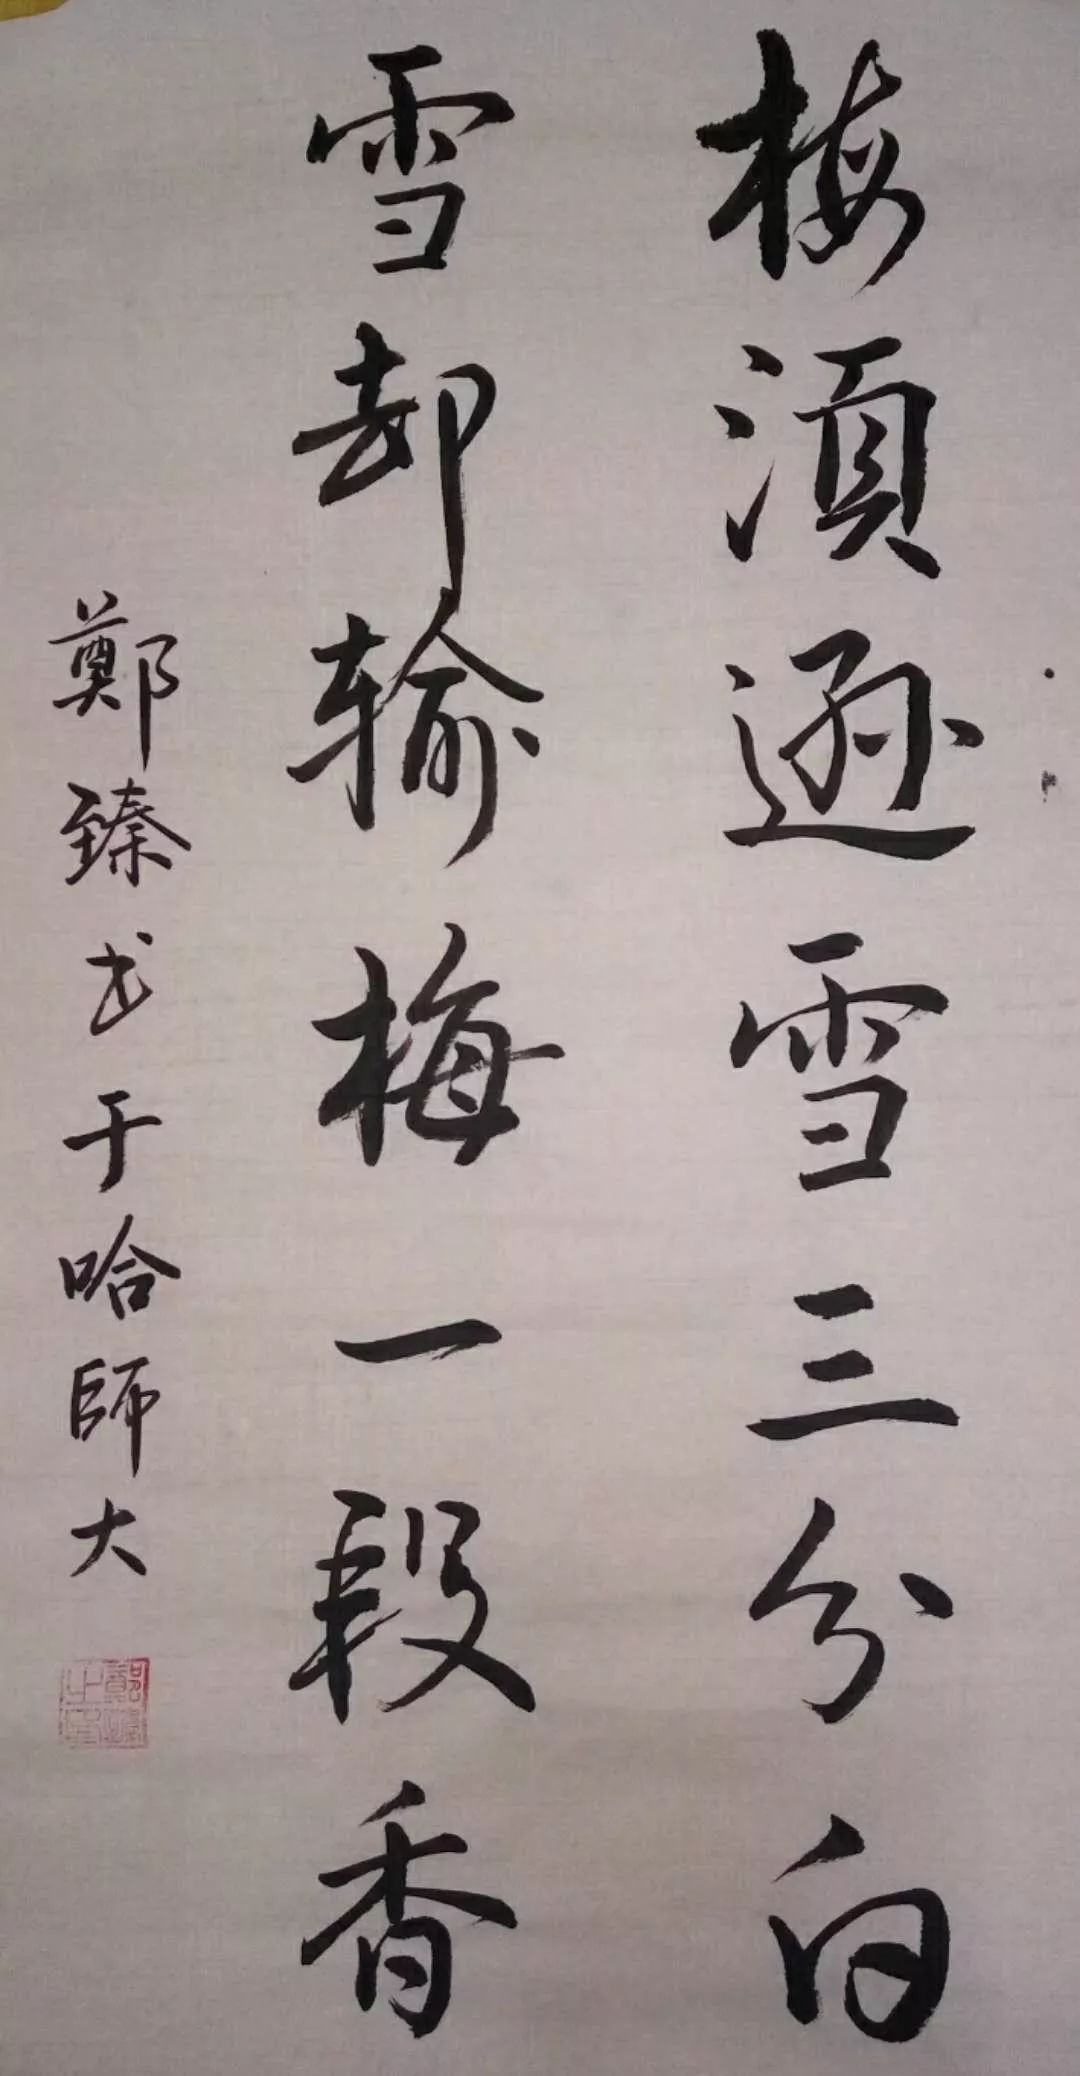 梅須遜雪三分白
雪却输梅一段香
鄭臻书于哈師大